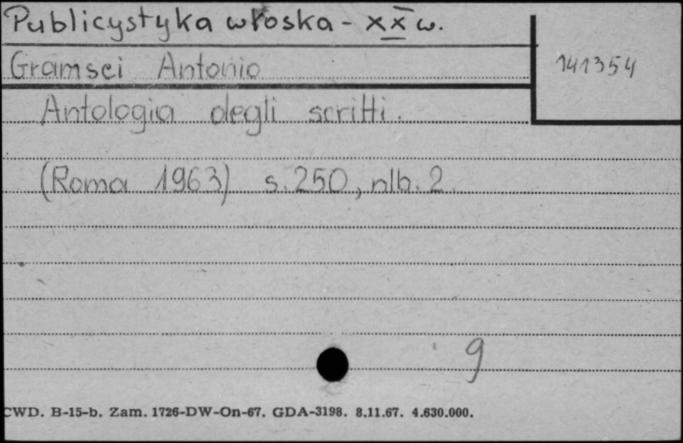 Publicystyka włoska - XX w.
Gramsci Antonio
141354
Antologia degli scritti.
(Roma 1963) s. 250, nlb. 2.
9
CWD. B-15-b. Zam. 1726-DW-On-67. GDA-3198. 8.11.67. 4.630.000.